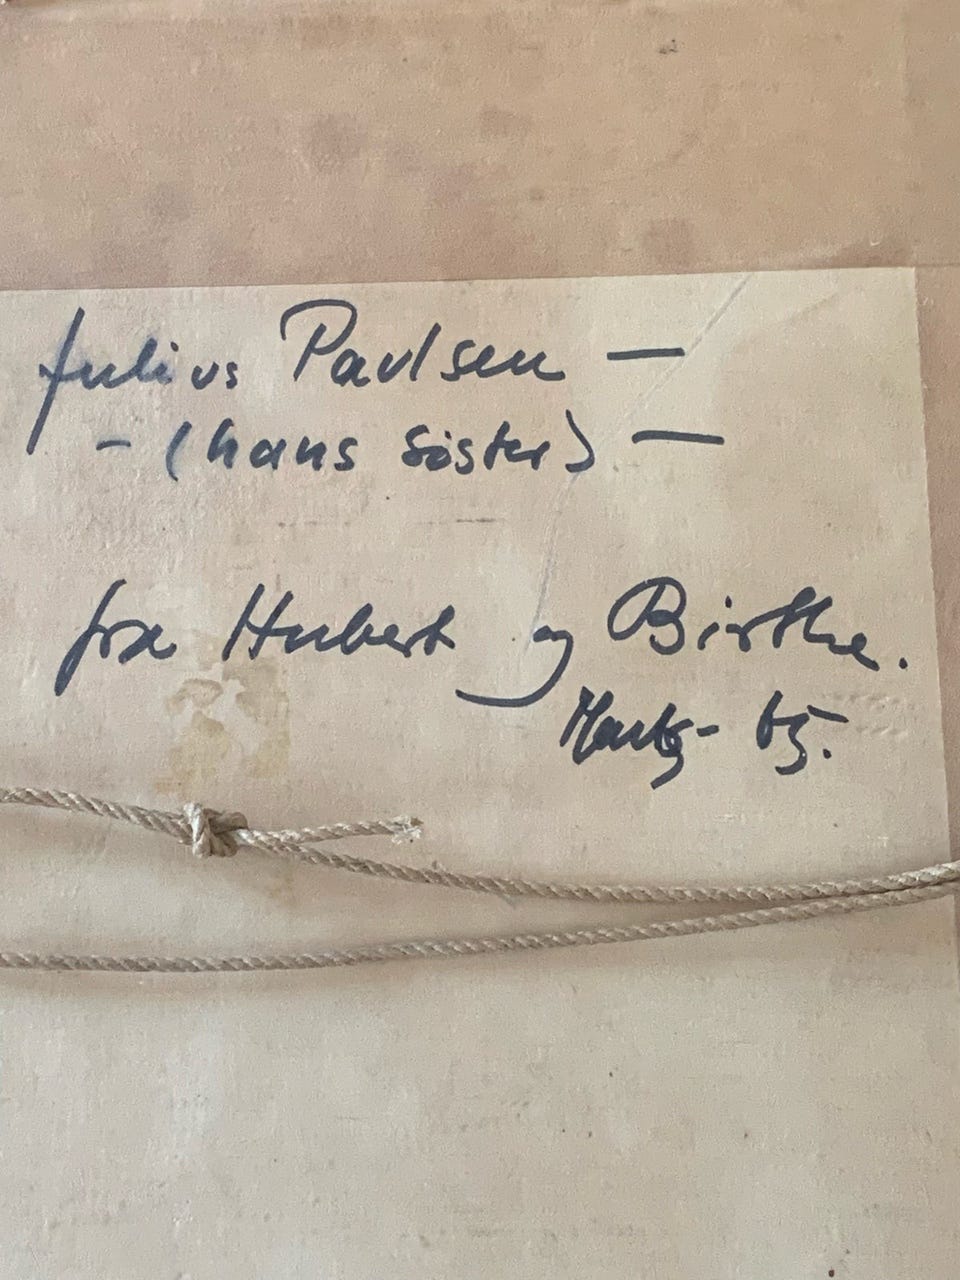 Julius Paulsen —
- (hans søster) —
fra Hubert og Birthe.
Marts - 65.